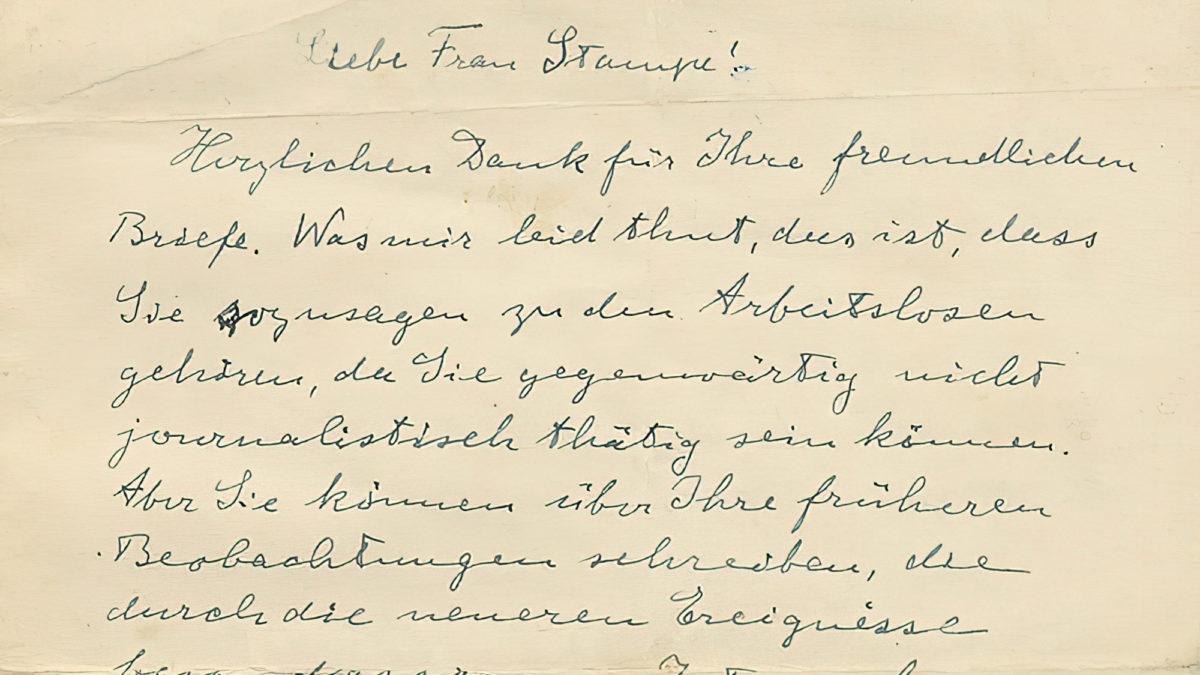 Liebe Frau Stampe!
Herzlichen Dank für Ihre freundlichen
Briefe. Was mir leid thut, das ist, dass
Sie sozusagen zu den Arbeitslosen
gehören, da Sie gegenwärtig nicht
journalistisch thätig sein können.
Aber Sie können über Ihre früheren
Beobachtungen schreiben, die
durch die neueren Ereignisse